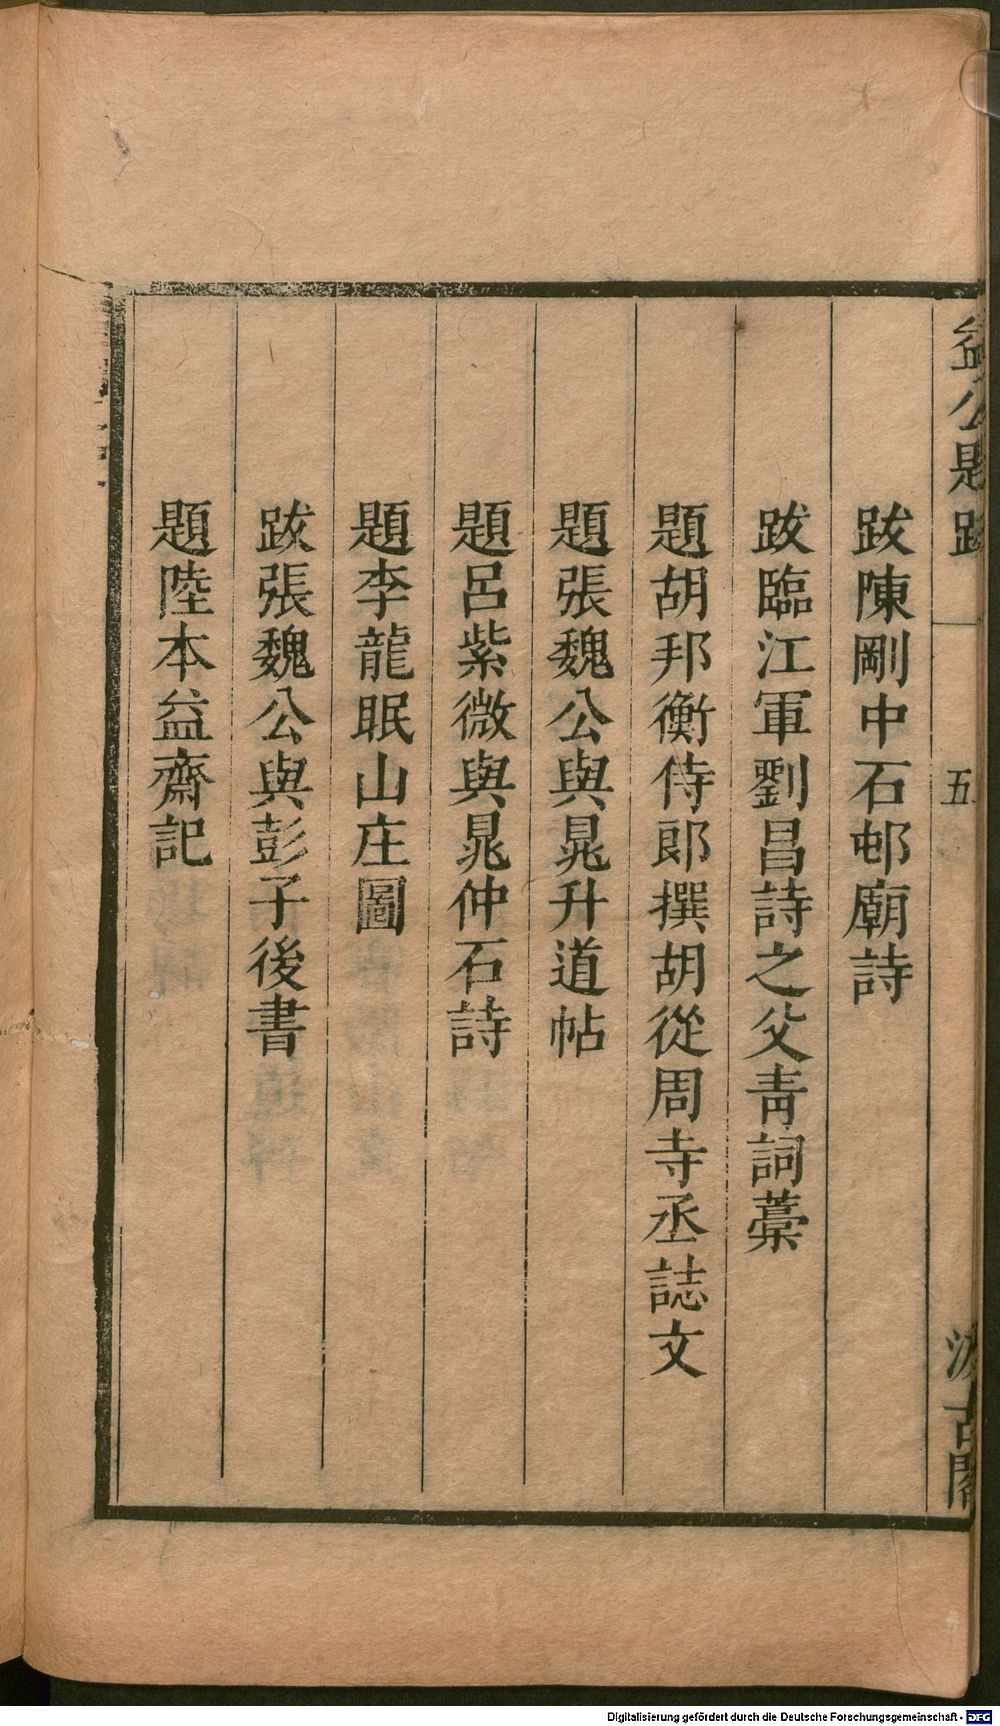 益公題跋
五
汲古閣
跋陳剛中石邨廟詩
跋臨江軍劉昌詩之父青詞藳
題胡邦衡侍郎撰胡從周寺丞誌文
題張魏公與晁升道帖
題呂紫微與晁仲石詩
題李龍眠山庄圖
跋張魏公與彭子後書
題陸本益齋記
Digitalisierung gefördert durch die Deutsche Forschungsgemeinschaft - DFG